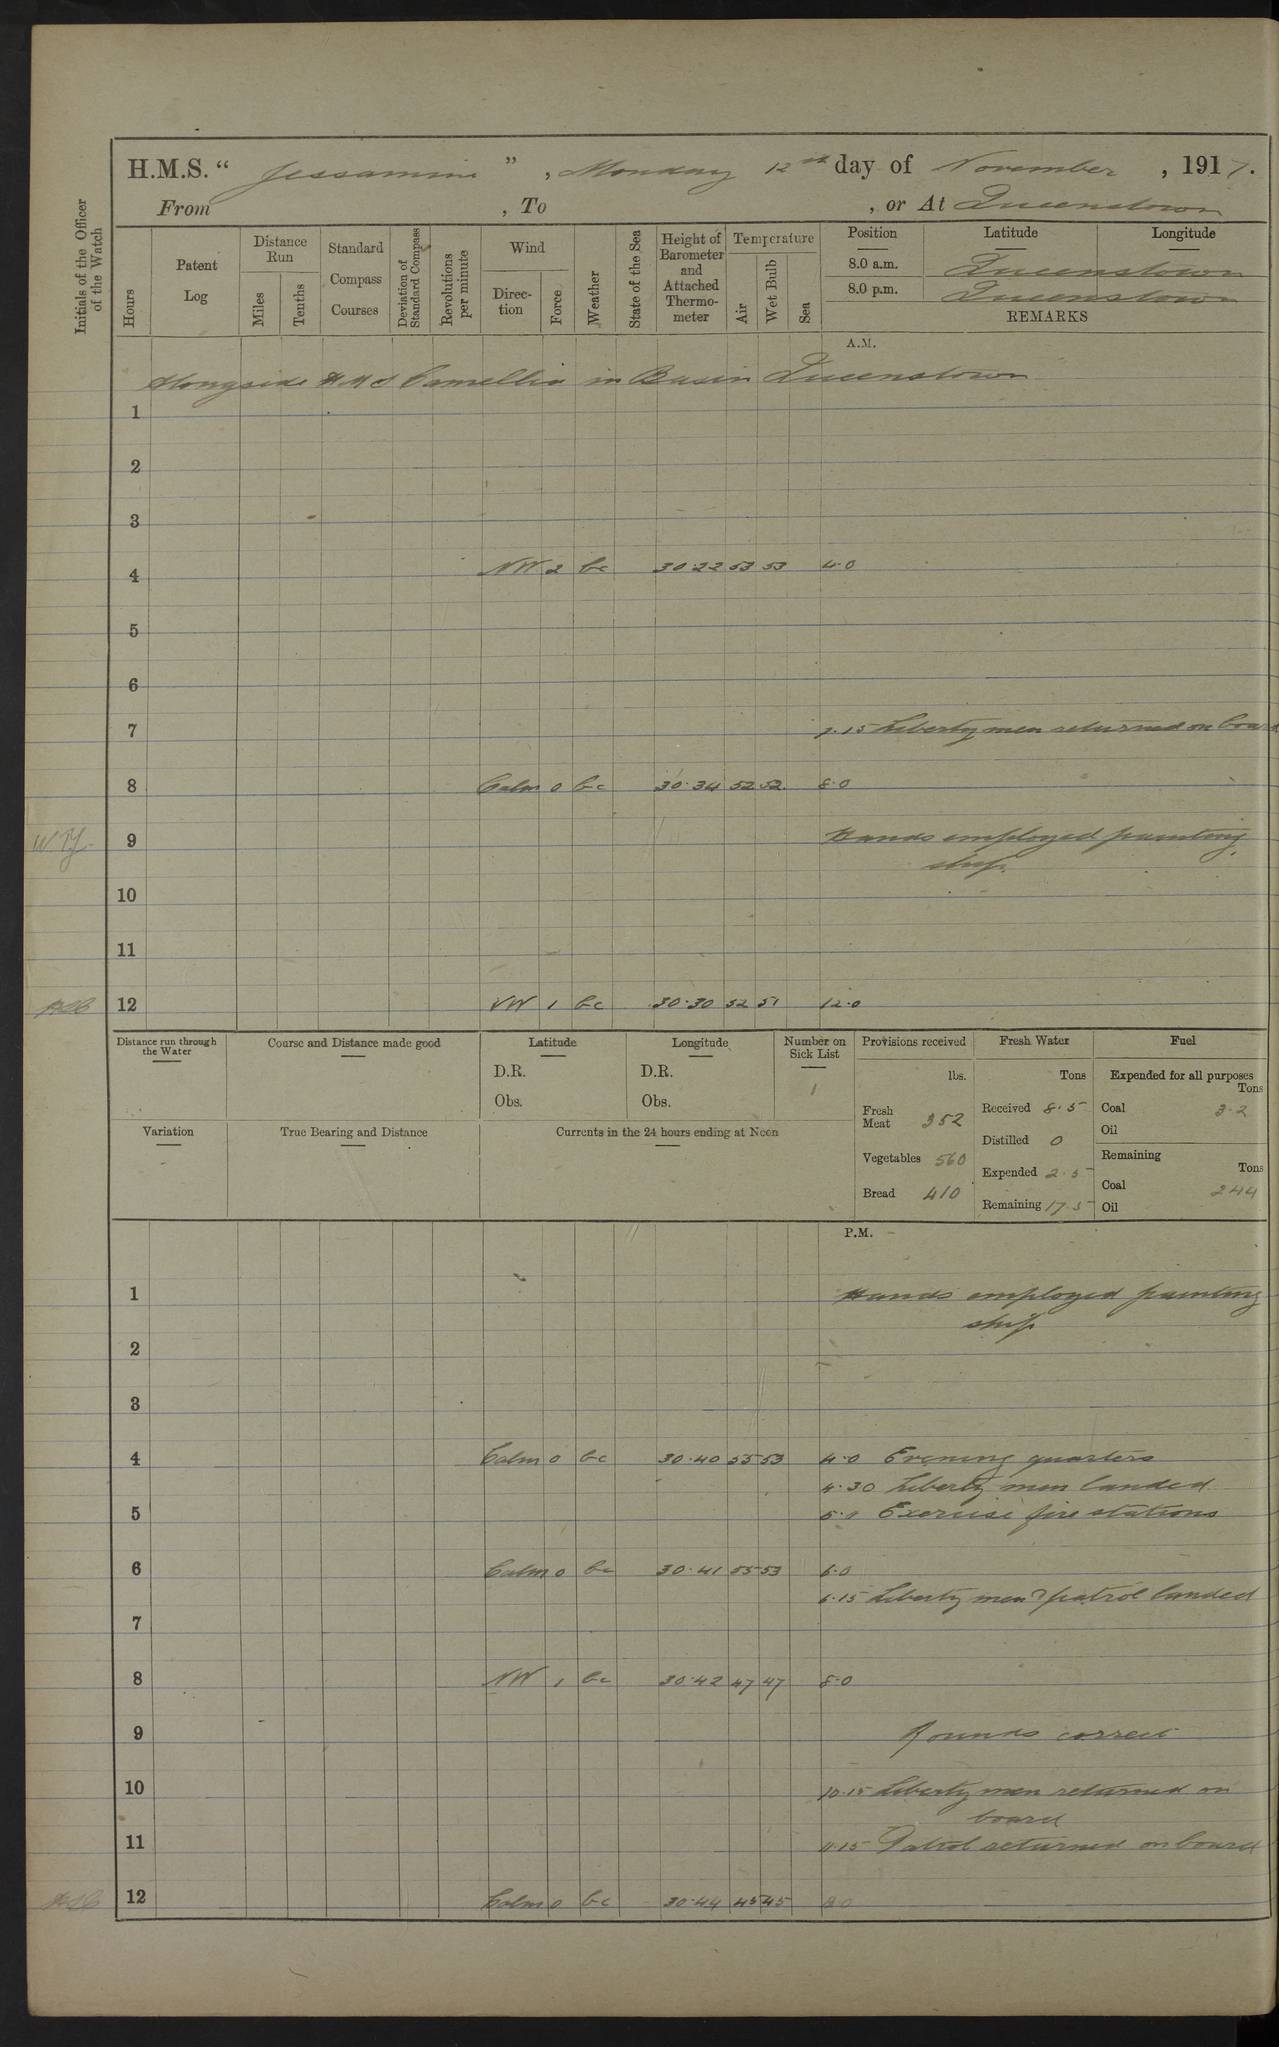 H.M.S. “ Jessamine ” , Monday 12th day of November , 1917.
From , To , or At Queenstown
Initials of the Officer of the Watch
Hours
Patent Log
Distance Run
Miles
Tenths
Standard Compass Courses
Deviation of Standard Compass
Revolutions per minute
Wind
Direc-tion
Force
Weather
State of the Sea
Height of Barometer and Attached Thermo-meter
Temperature
Air
Wet Bulb
Sea
Position Latitude Longitude
8.0 a.m. Queenstown
8.0 p.m. Queenstown
REMARKS
A.M.
Alongside HMS Camellia in Basin Queenstown
1
2
3
4 NW 2 bc 30.22 53 53 4.0
5
6
7 7.15 Liberty men returned on board
8 Calm 0 bc 30.34 52 52 8.0
9 Hands employed painting
ship.
10
11
12 NW 1 bc 30.30 52 51 12.0
Distance run through the Water
Course and Distance made good
Latitude
D.R.
Obs.
Longitude
D.R.
Obs.
Number on Sick List
1
Provisions received
lbs.
Fresh Meat 352
Vegetables 560
Bread 410
Fresh Water
Tons
Received 8.5
Distilled 0
Expended 2.5
Remaining 17.5
Fuel
Expended for all purposes
Tons
Coal 3.2
Oil
Remaining
Tons
Coal 244
Oil
Variation
True Bearing and Distance
Currents in the 24 hours ending at Noon
P.M.
1 Hands employed painting
ship
2
3
4 Calm 0 bc 30.40 55 53 4.0 Evening quarters
4.30 Liberty men landed
5 5.0 Exercise fire stations
6 Calm 0 bc 30.41 55 53 6.0
6.15 Liberty men & patrol landed
7
8 NW 1 bc 30.42 47 47 8.0
9 Rounds correct
10 10.15 Liberty men returned on
board
11 11.15 Patrol returned on board
12 Calm 0 bc 30.44 45 45